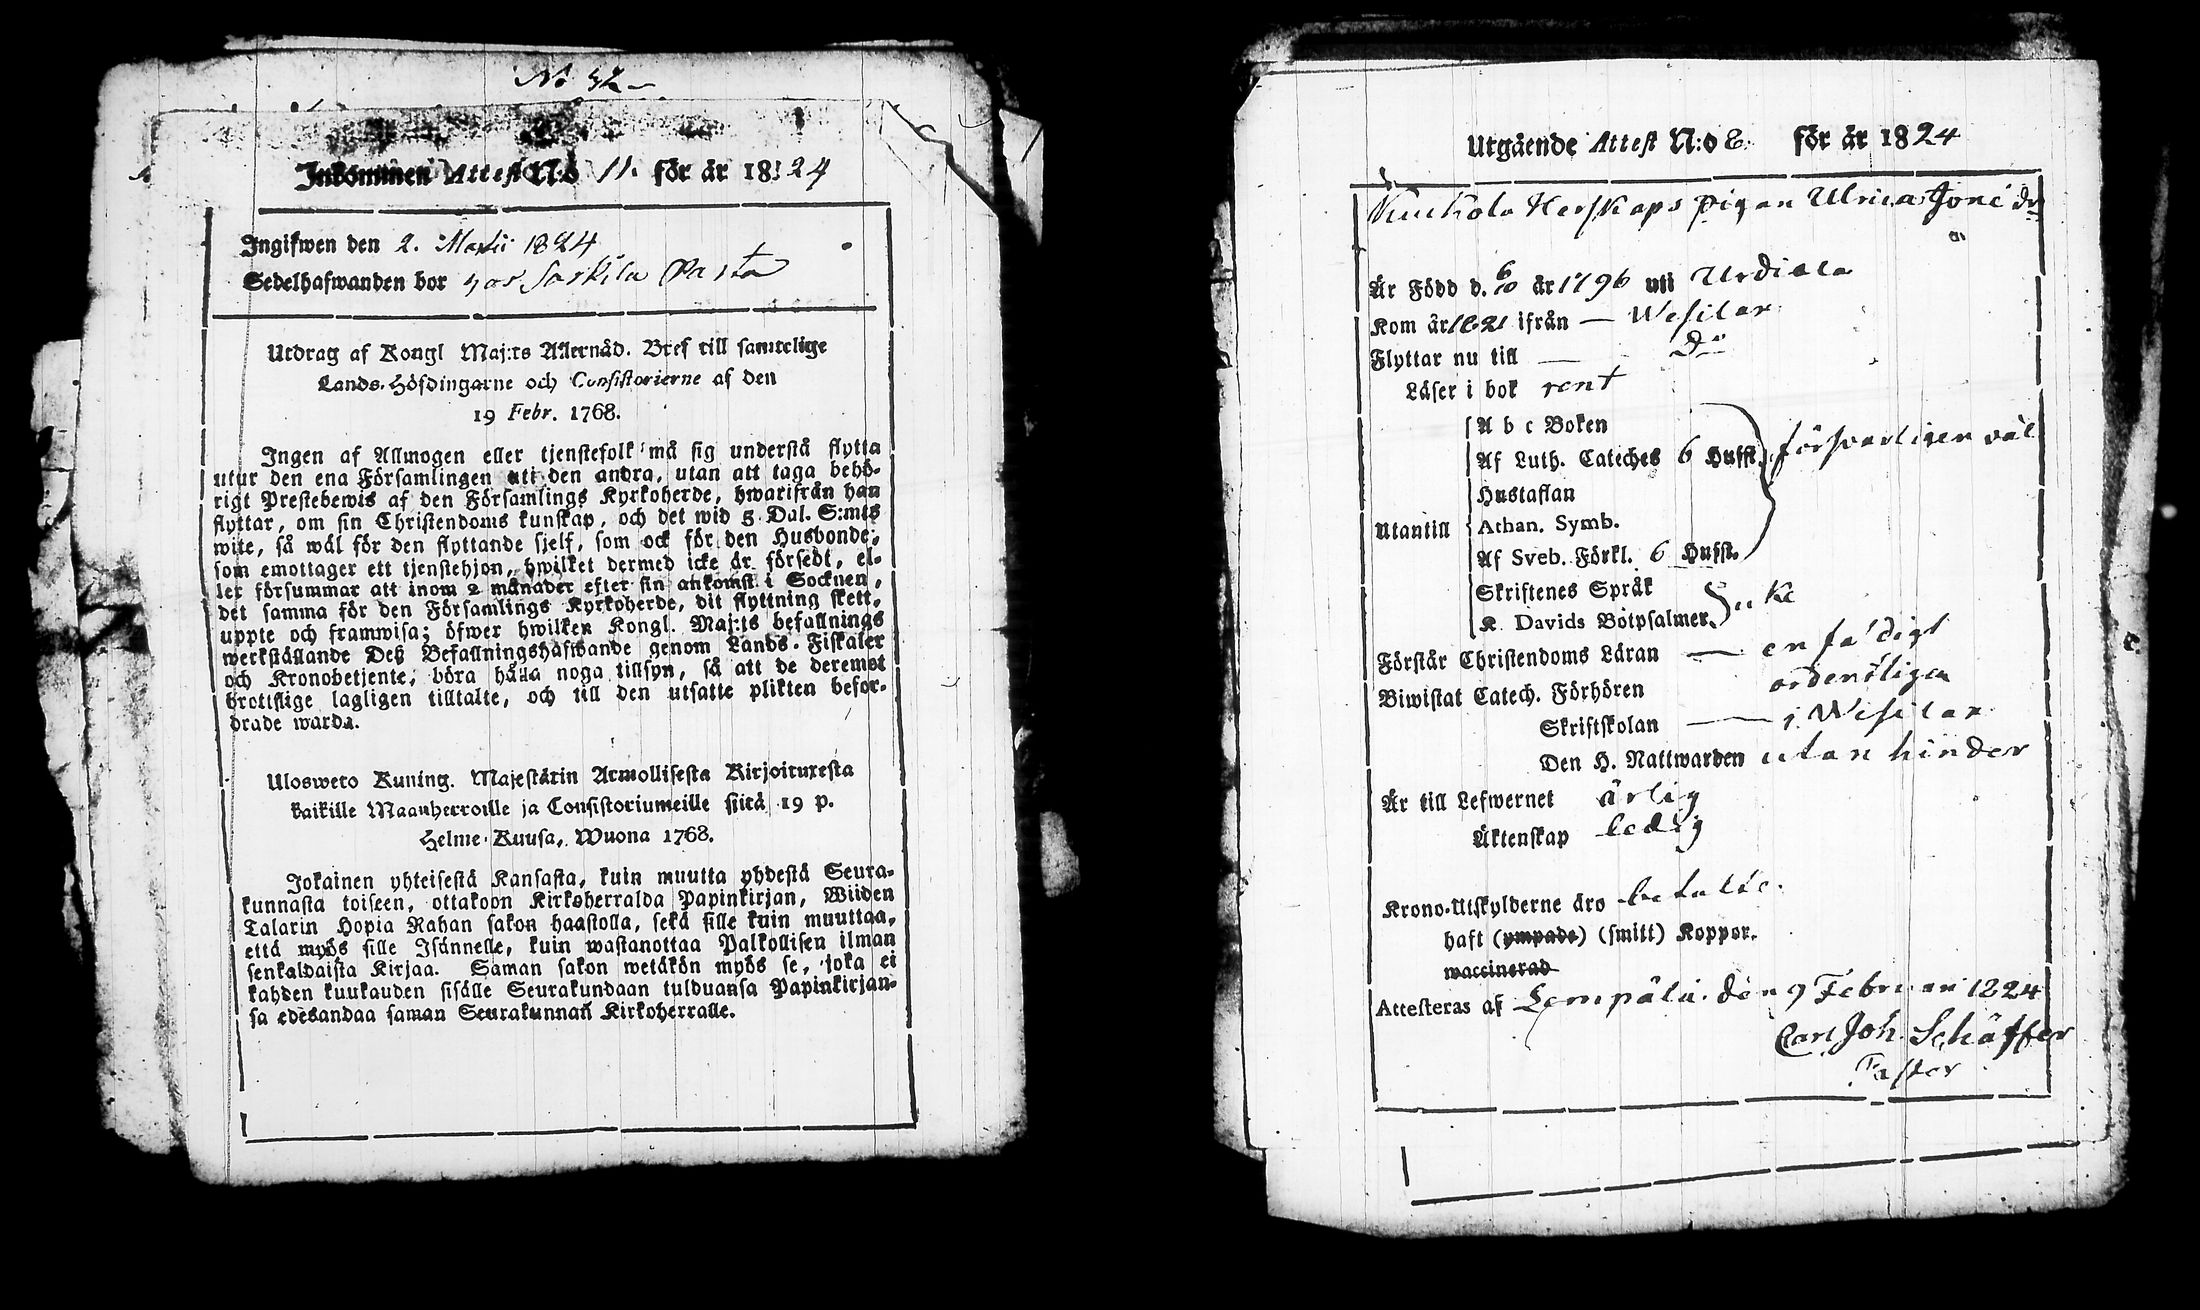 No 42
Inkommen Attest N:o 11. för år 1824
Ingifwen den 2. Martii 1824
Sedelhafwanden bor hos Sarkila
Utdrag af Kongl Maj:ts Allernåd. Bref till samtelige
Lands-Höfdingarne och Consistorierne af den
19 Febr. 1768.
Ingen af Allmogen eller tjenstefolk må sig understå flytta
utur den ena Församlingen uti den andra, utan att taga behö-
rigt Prestebewis af den Församlings Kyrkoherde, hwarifrån han
flyttar, om sin Christendoms kunskap, och det wid 5 Dal. S:mts
wite, så wäl för den flyttande sjelf, som ock för den Husbonde,
som emottager ett tjenstehjon, hwilket dermed icke är försedt, el-
ler försummar att inom 2 månader efter sin ankomst i Socknen,
det samma för den Församlings Kyrkoherde, dit flyttning skett,
uppte och framwisa; öfwer hwilken Kongl. Maj:ts befallnings
werkställande Deß Befallningshafwande genom Lands-Fiskaler
och Kronobetjente, böra hålla noga tillsyn, så att de deremot
brottslige lagligen tilltalte, och till den utsatte plikten befor-
drade warda.
Ulosweto Kuning. Majestätin Armollisesta Kirjoituxesta
kaikille Maanherroille ja Consistoriumeille siitä 19 p.
Helme-Kuusa, Wuona 1768.
Jokainen yhteisestä Kansasta, kuin muutta yhdestä Seura-
kunnasta toiseen, ottakoon Kirkoherralda Papinkirjan, Wiiden
Talarin Hopia Rahan sakon haastolla, sekä sille kuin muuttaa,
että myös sille Isännelle, kuin wastanottaa Palkollisen ilman
senkaldaista Kirjaa. Saman sakon wetäkön myös se, joka ei
kahden kuukauden sisälle Seurakundaan tulduansa Papinkirjan-
sa edesandaa saman Seurakunnan Kirkoherralle.
Utgående Attest N:o 8. för år 1824
Kuckola Herskaps pigan Ulrica Joh: dr
Är Född d. 6 år 1796 uti Urdiala
Kom år 1821 ifrån — Wesilax
Flyttar nu till — Do
Läser i bok rent
A b c Boken
Af Luth. Cateches 6 Hufst. försvarligen väl
Hustaflan
Utantill Athan. Symb.
Af Sveb. Förkl. 6 Hufst.
Skriftenes Språk
K. Davids Botpsalmer. icke
Förstår Christendoms Läran — enfaldigt
Biwistat Catech. Förhören ordentligen
Skriftskolan — i Wesilax
Den H. Nattwarden utan hinder
Är till Lefwernet ärlig
Äktenskap ledig
Krono-Utskylderne äro betalte.
haft (ympade) (smitt) Koppor.
waccinerad
Attesteras af Lempälä den 9 Februari 1824
Carl Joh. Schäffer
Pastor